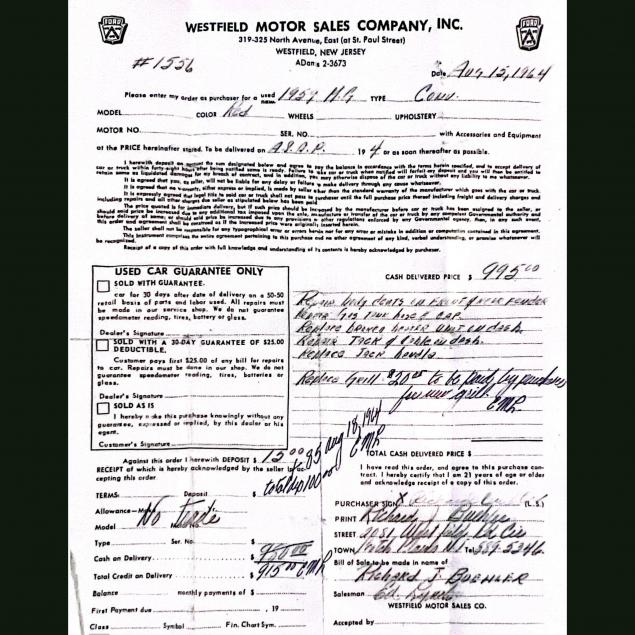 FORD
WESTFIELD MOTOR SALES COMPANY, INC.
FORD
319-325 North Avenue, East (at St. Paul Street)
WESTFIELD, NEW JERSEY
ADams 2-3673
#1556
Date Aug 15, 1964
Please enter my order as purchaser for a used new 1959 M.G TYPE Conv.
MODEL COLOR Red WHEELS UPHOLSTERY
MOTOR NO. SER. NO. with Accessories and Equipment
at the PRICE hereinafter stated. To be delivered on A.S.A.P. 19 4 or as soon thereafter as possible.
I herewith deposit on account the sum designated below and agree to pay the balance in accordance with the terms herein specified, and to accept delivery of
car or truck within forty-eight hours after being notified same is ready. Failure to take car or truck when notified will forfeit my deposit and you will then be entitled to
retain same as liquidated damages for my breach of contract, and in addition, you may otherwise dispose of the car without any liability to me whatsoever.
It is agreed that you, as seller, will not be liable for any delay or failure to make delivery through any cause whatsoever.
It is agreed that no warranty, either express or implied, is made by seller other than the standard warranty of the manufacturer which goes with the car or truck.
It is expressly agreed that legal title to said car or truck shall not pass to purchaser until the full purchase price thereof including freight and delivery charges and
including repairs and all other charges due seller as stipulated below has been paid
The seller shall not be responsible for any typographical error or errors herein nor for any error or mistake in addition or computation contained in this agreement.
This instrument comprises the entire agreement pertaining to this purchase and no other agreement of any kind, verbal understanding, or promise whatsoever will
be recognized.
Receipt of a copy of this order with full knowledge and understanding of its contents is hereby acknowledged by purchaser.
USED CAR GUARANTEE ONLY
SOLD WITH GUARANTEE.
car for 30 days after date of delivery on a 50-50
retail basis of parts and labor used. All repairs must
be made in our service shop. We do not guarantee
speedometer reading, tires, battery or glass.
Dealer's Signature
SOLD WITH A 30-DAY GUARANTEE OF $25.00
DEDUCTIBLE.
Customer pays first $25.00 of any bill for repairs
to car. Repairs must be done in our shop. We do not
guarantee speedometer reading, tires, batteries or
glass.
Dealer's Signature
SOLD AS IS
I hereby make this purchase knowingly without any
guarantee, expressed or implied, by this dealer or his
agent.
Customer's Signature
CASH DELIVERED PRICE $ 995.00
Repair body dents in front &
Repair gas tank
Replace heater unit in dash.
Repair Tach in dash.
Replace Jack handle
Replace Grill $20.00 to be paid by purchaser
for new grill
EMR
Against this order I herewith DEPOSIT $ 15.00
RECEIPT of which is hereby acknowledged by the seller is
cepting this order.
85 Aug 18, 1964
EMR
TERMS: Deposit $
Allowance—
No Trade
Model
Type Ser. No. $
Cash on Delivery $ 980.00
Total Credit on Delivery $ 915.00 EMR
Balance monthly payments of $
First Payment due , 19
Class Symbol Fin. Chart Sym.
TOTAL CASH DELIVERED PRICE $
I have read this order, and agree to this purchase con-
tract. I hereby certify that I am 21 years of age or older
and acknowledge receipt of a copy of this order.
PURCHASER SIGN X (L. S.)
PRINT Richard J Buehler
STREET
TOWN Tel. 889-5346
Bill of Sale to be made in name of
Richard J. Buehler
Salesman
WESTFIELD MOTOR SALES CO.
Accepted by